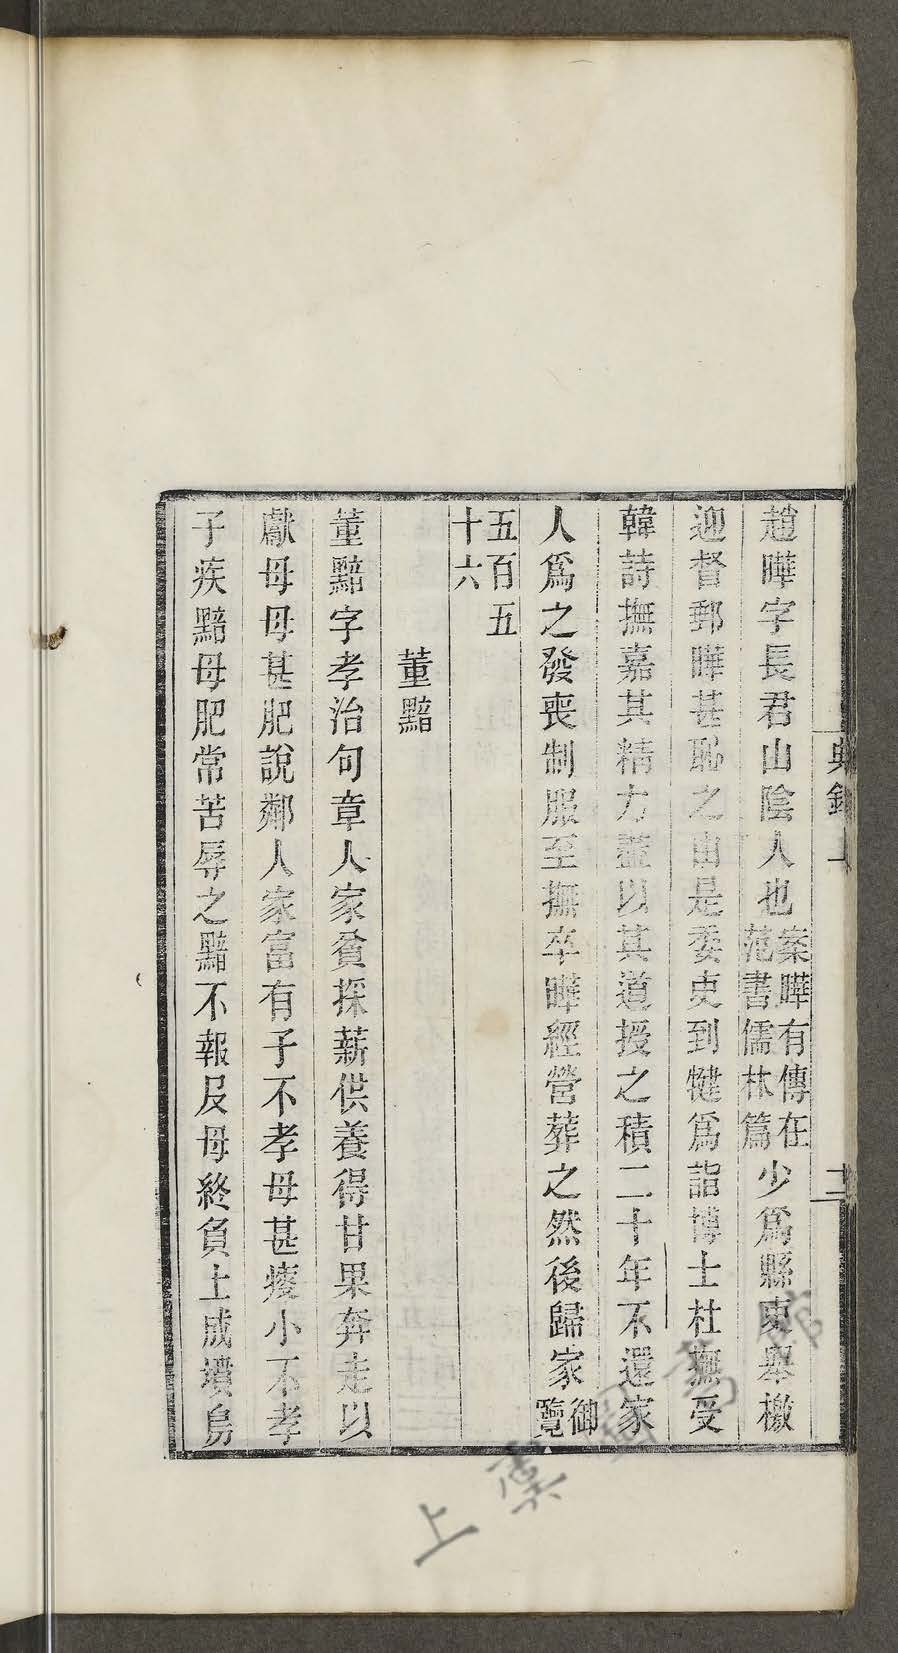 趙曄字長君山陰人也案曄有傳在范書儒林篇少爲縣吏舉檄
迎督郵曄甚恥之由是委吏到犍爲詣博士杜撫受
韓詩撫嘉其精力盡以其道授之積二十年不還家
人爲之發喪制服至撫卒曄經營葬之然後歸家御覽
五百五十六
董黯
董黯字孝治句章人家貧採薪供養得甘果奔走以
獻母母甚肥說鄰人家富有子不孝母甚瘦小不孝
子疾黯母肥常苦辱之黯不報及母終負土成墳鳥
典錄上
十二
上虞